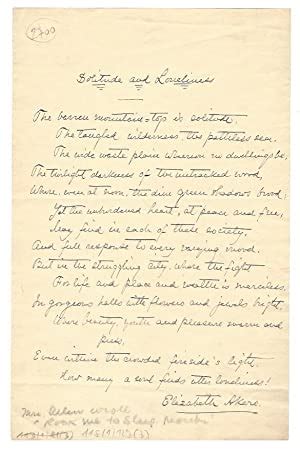 9200
Solitude and Loneliness
The barren mountain-top is solitude,
The tangled wilderness, the pathless sea,
The wide waste plain wherein no dwellings be,
The twilight darkness of the untracked wood,
Where, even at noon, the dim green shadows brood:
Yet the unburdened heart, at peace and free,
May find in each of these society,
And full response to every varying mood.
But in the struggling city, where the fight
For life and place and wealth is merciless,
In gorgeous halls with flowers and jewels bright,
Where beauty, youth and pleasure swarm and
press,
Even within the crowded fireside's light,
How many a soul finds utter loneliness!
Elizabeth Akers.
Mrs. Allen wrote
"Rock me to Sleep, Mother"